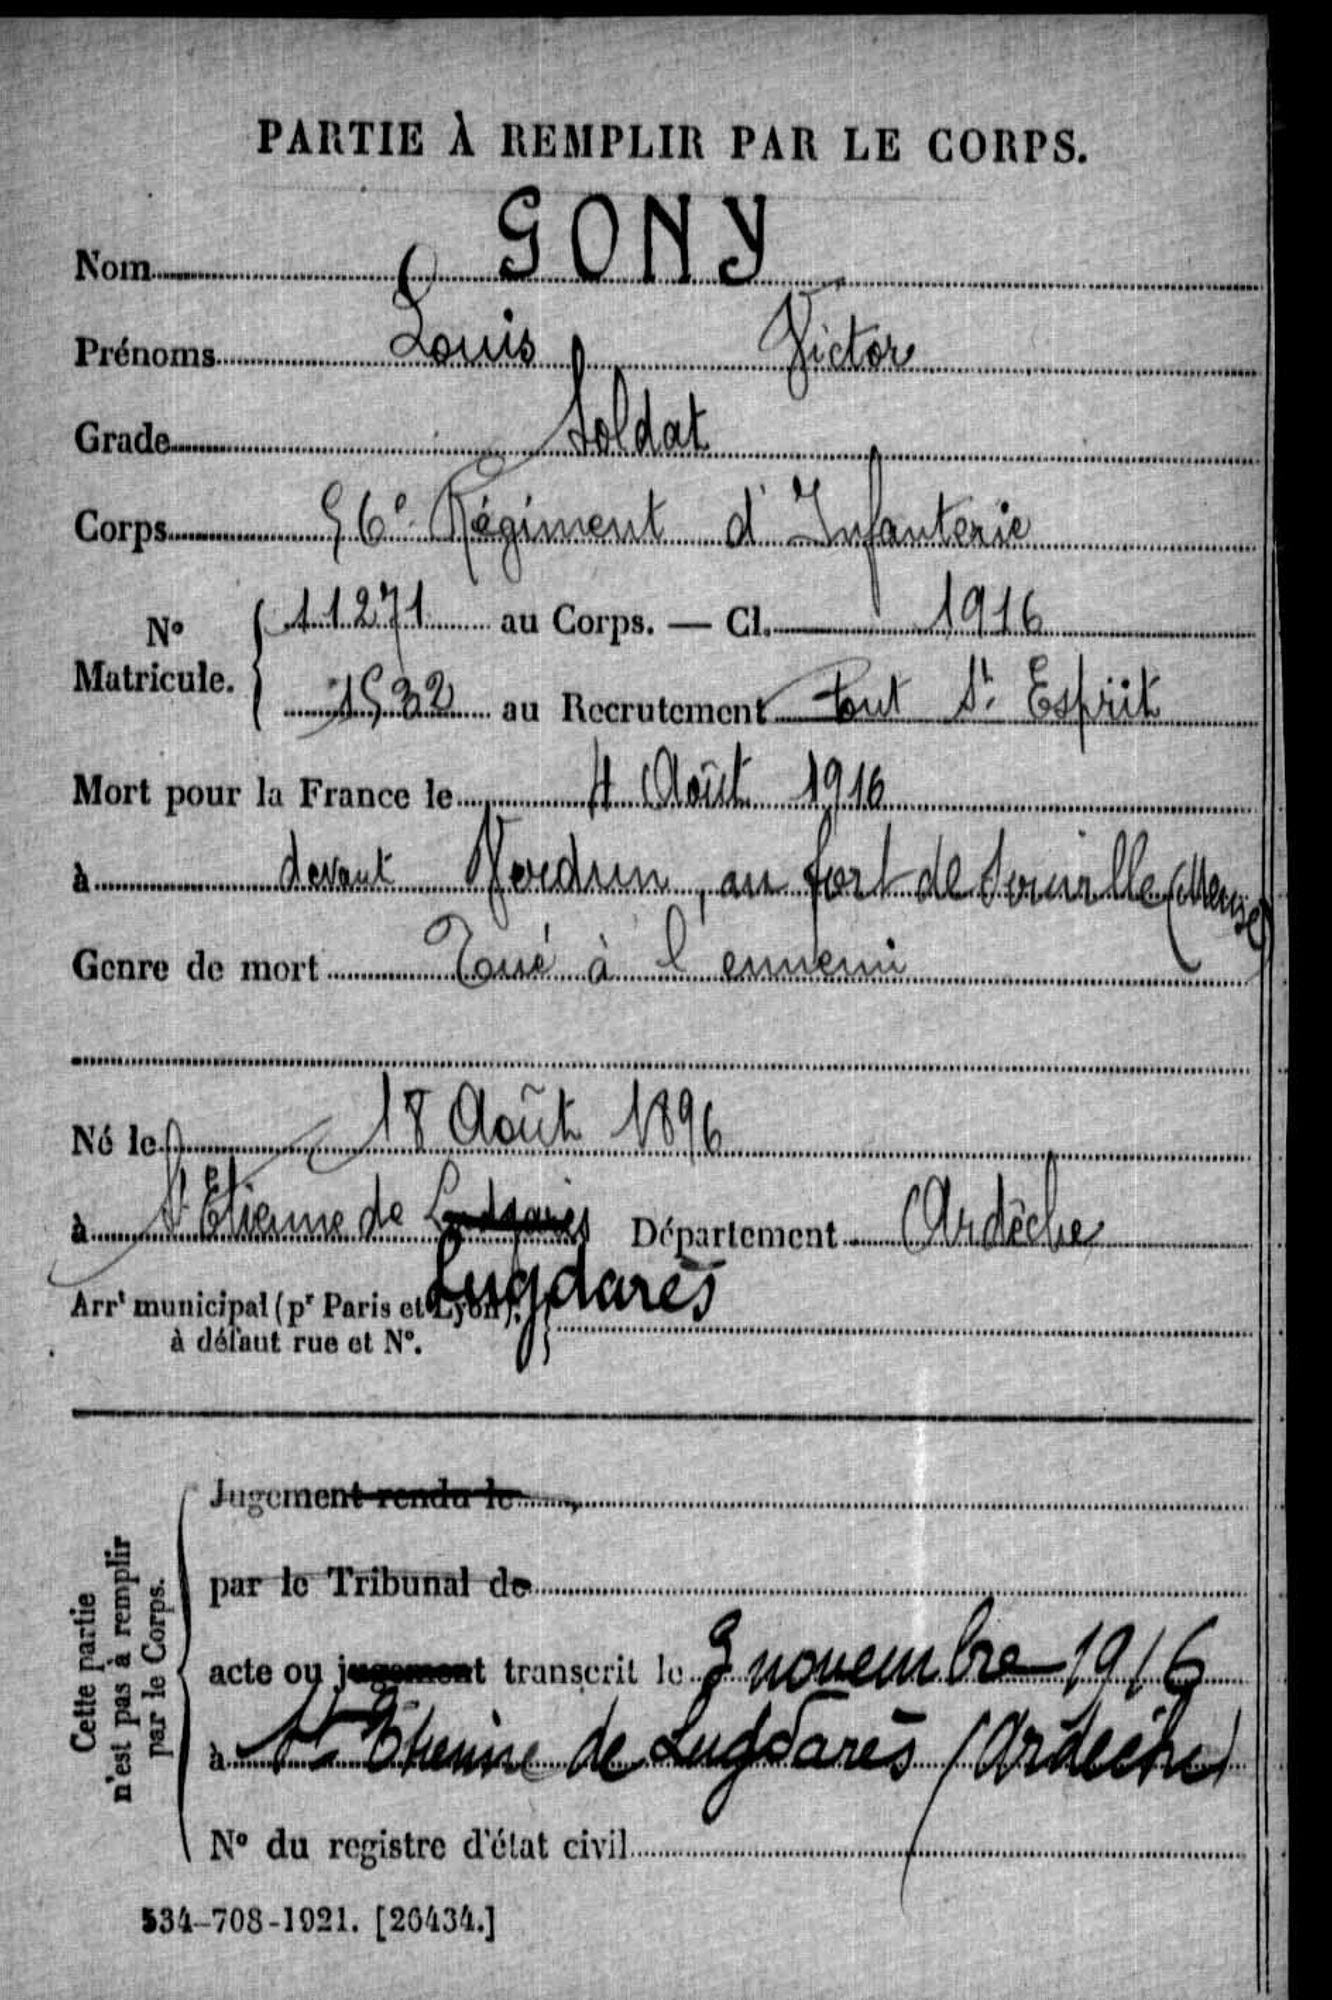 PARTIE À REMPLIR PAR LE CORPS.
Nom GONY
Prénoms Louis Victor
Grade Soldat
Corps 56e Régiment d'Infanterie
N° Matricule. { 11271 au Corps. — Cl. 1916
1532 au Recrutement Pont St Esprit
Mort pour la France le 4 Août 1916
à devant Verdun, au fort de Souville (Meuse)
Genre de mort Tué à l'ennemi
Né le 18 Août 1896
à St Etienne de Département Ardèche
Lugdarès
Arrt municipal (pr Paris et Lyon),
à défaut rue et N°.
Cette partie n'est pas à remplir par le Corps.
Jugement rendu le
par le Tribunal de
acte ou jugement transcrit le 3 novembre 1916
à St Etienne de Lugdarès (Ardèche)
N° du registre d'état civil
534-708-1921. [26434.]